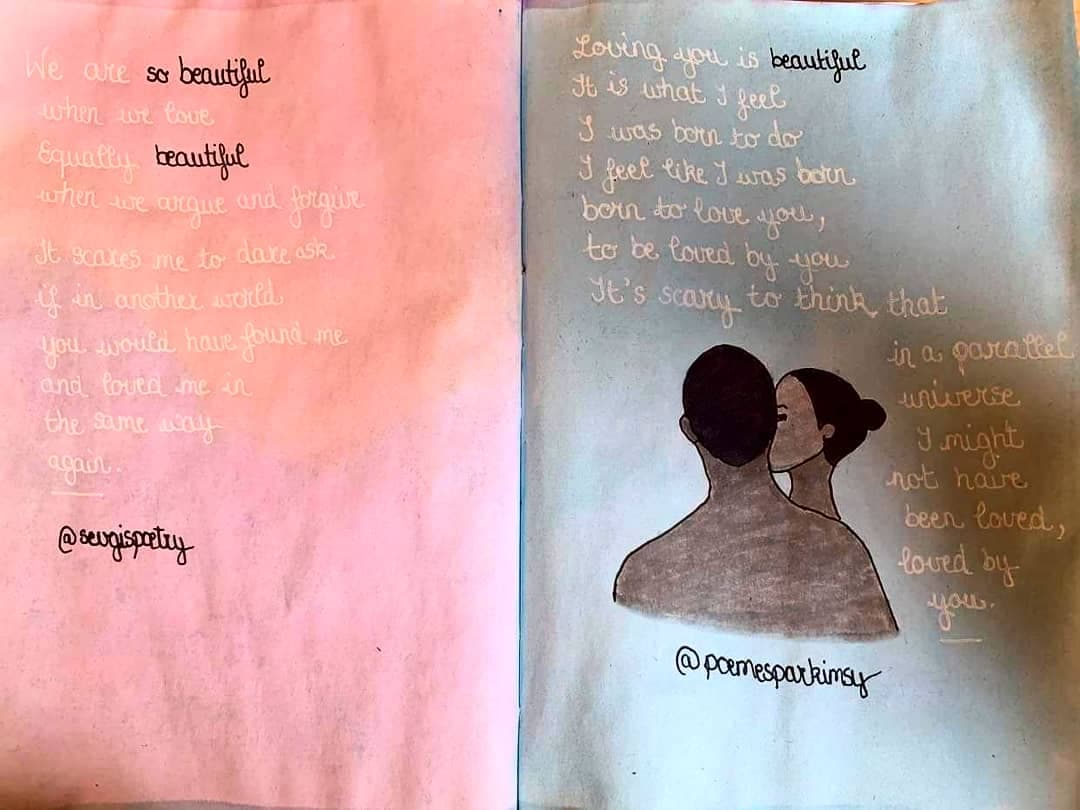 We are so beautiful
when we love
Equally beautiful
when we argue and forgive
It scares me to dare ask
if in another world
you would have found me
and loved me in
the same way
again.
@sevgispoetry
Loving you is beautiful
It is what I feel
I was born to do
I feel like I was born
born to love you,
to be loved by you
It's scary to think that
in a parallel
universe
I might
not have
been loved,
loved by
you.
@poemesparkimsy